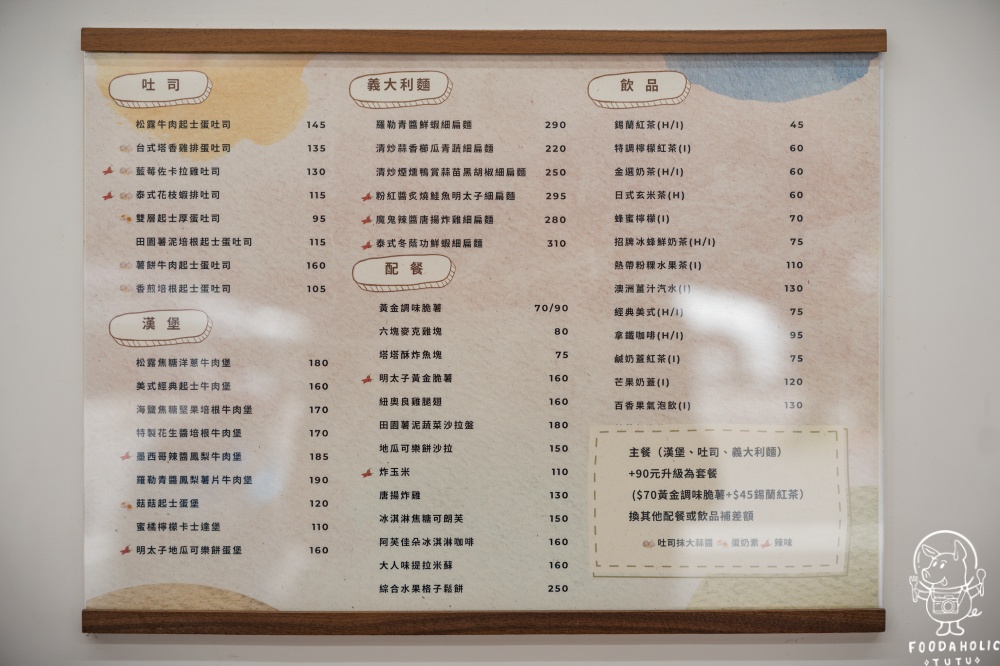 吐司
松露牛肉起士蛋吐司 145
台式塔香雞排蛋吐司 135
藍莓佐卡拉雞吐司 130
泰式花枝蝦排吐司 115
雙層起士厚蛋吐司 95
田園薯泥培根起士蛋吐司 115
薯餅牛肉起士蛋吐司 160
香煎培根起士蛋吐司 105
漢堡
松露焦糖洋蔥牛肉堡 180
美式經典起士牛肉堡 160
海鹽焦糖堅果培根牛肉堡 170
特製花生醬培根牛肉堡 170
墨西哥辣醬鳳梨牛肉堡 185
羅勒青醬鳳梨薯片牛肉堡 190
菇菇起士蛋堡 120
蜜橘檸檬卡士達堡 110
明太子地瓜可樂餅蛋堡 160
義大利麵
羅勒青醬鮮蝦細扁麵 290
清炒蒜香櫛瓜青蔬細扁麵 220
清炒煙燻鴨賞蒜苗黑胡椒細扁麵 250
粉紅醬炙燒鮭魚明太子細扁麵 295
魔鬼辣醬唐揚炸雞細扁麵 280
泰式冬蔭功鮮蝦細扁麵 310
配餐
黃金調味脆薯 70/90
六塊麥克雞塊 80
塔塔酥炸魚塊 75
明太子黃金脆薯 160
紐奧良雞腿翅 160
田園薯泥蔬菜沙拉盤 180
地瓜可樂餅沙拉 150
炸玉米 110
唐揚炸雞 130
冰淇淋焦糖可朗芙 150
阿芙佳朵冰淇淋咖啡 160
大人味提拉米蘇 160
綜合水果格子鬆餅 250
飲品
錫蘭紅茶(H/I) 45
特調檸檬紅茶(I) 60
金選奶茶(H/I) 60
日式玄米茶(H) 60
蜂蜜檸檬(I) 70
招牌冰蜂鮮奶茶(H/I) 75
熱帶粉粿水果茶(I) 110
澳洲薑汁汽水(I) 130
經典美式(H/I) 75
拿鐵咖啡(H/I) 95
鹹奶蓋紅茶(I) 75
芒果奶蓋(I) 120
百香果氣泡飲(I) 130
主餐（漢堡、吐司、義大利麵）
+90元升級為套餐
($70黃金調味脆薯+$45錫蘭紅茶)
換其他配餐或飲品補差額
吐司抹大蒜醬 蛋奶素 辣味
FOODAHOLIC
TUTU